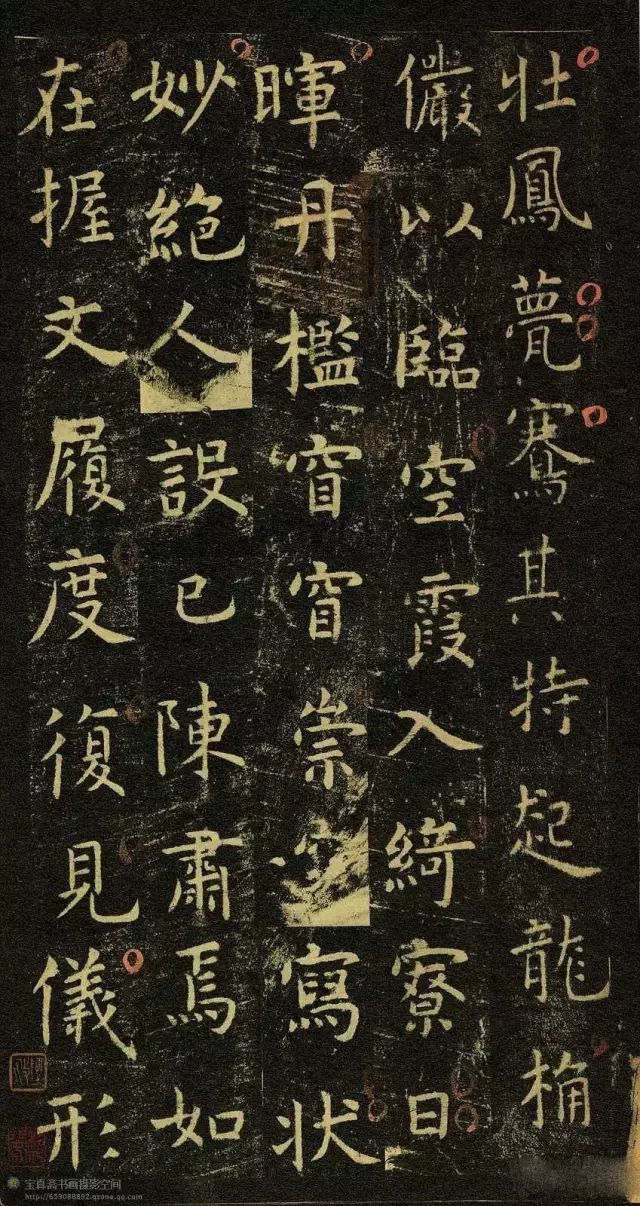 壯鳳甍騫其特起龍桷
儼以臨空霞入綺寮日
暉丹檻窅窅崇寫狀
妙絕人設已陳肅焉如
在握文履度復見儀形
宝真斋书画摄影空间
http://659088892.qzone.qq.com